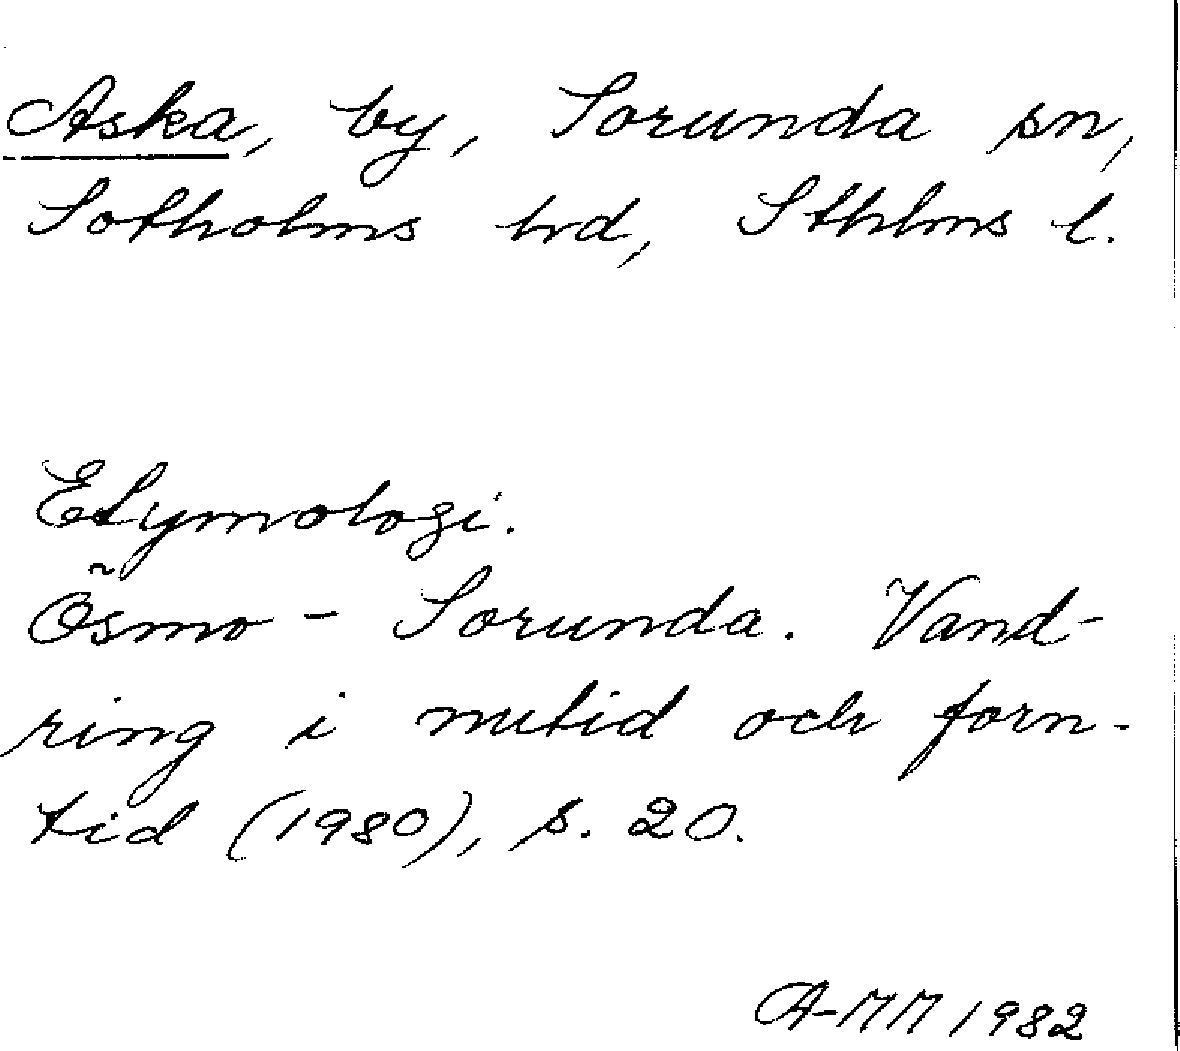 Aska, by, Sorunda sn,
Sotholms hd, Sthlms l.
Etymologi.
Ösmo - Sorunda. Vand-
ring i nutid och forn-
tid (1980), s. 20.
A-MM 1982